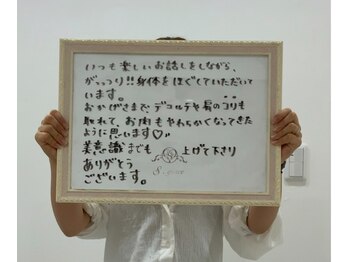 いつも楽しいお話しをしながら、
がっつり!!身体をほぐしていただいて
います。
おかげさまで、デコルテや肩のコリも
取れて、お肉もやわらかくなってきた
ように思います♡〃
美意識までも 上げて下さり
ありがとう
ございます。